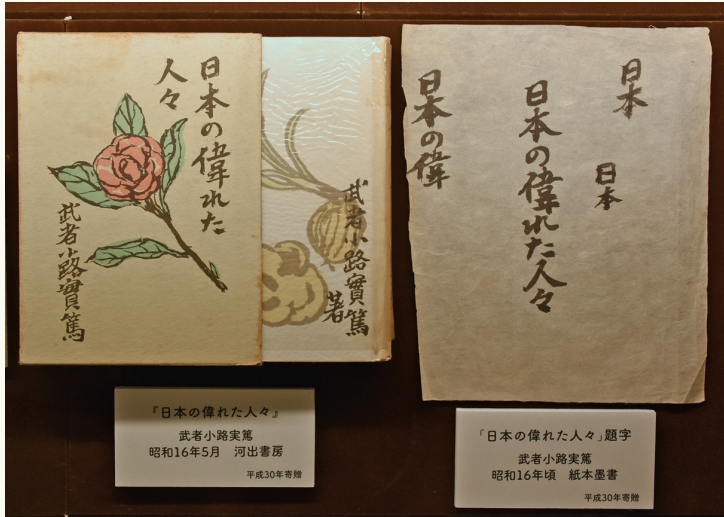 日本の偉れた
人々
武者小路實篤
武者小路實篤
著
日本
日本
日本の偉れた人々
日本の偉
『日本の偉れた人々』
武者小路実篤
昭和16年5月　河出書房
平成30年寄贈
「日本の偉れた人々」題字
武者小路実篤
昭和16年頃　紙本墨書
平成30年寄贈